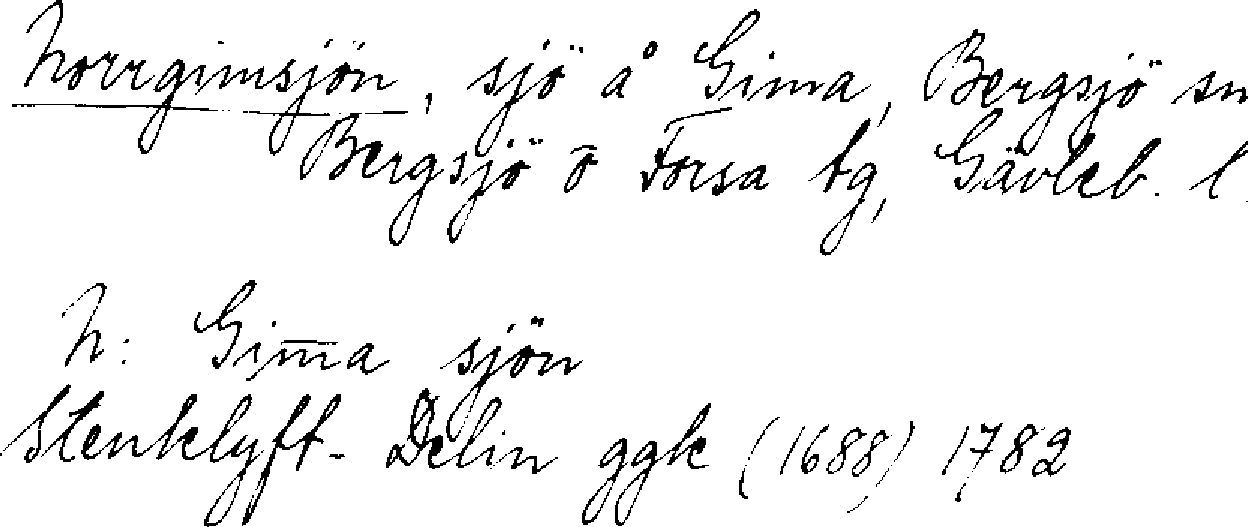 Norrgimsjön, sjö å Gima, Bergsjö sn
Bergsjö o Forsa tg, Gävleb. l.
N: Gim̅a sjön
Stenklyft- Delin ggk (1688) 1782